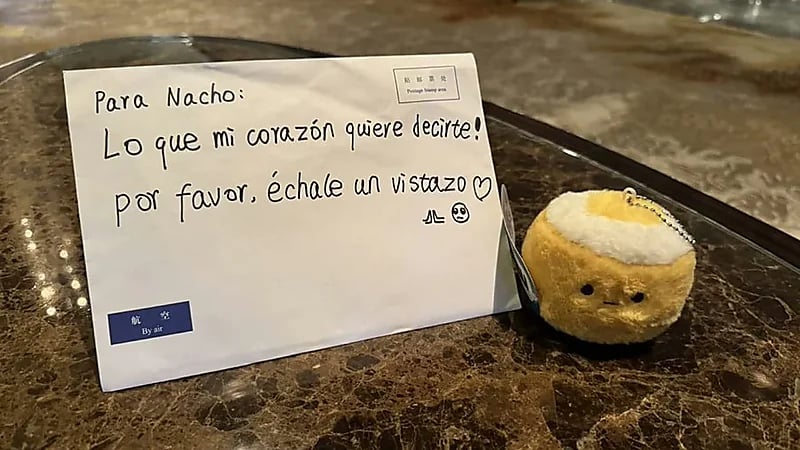 Para Nacho:
贴 邮 票 处
Postage Stamp area
Lo que mi corazón quiere decirte!
por favor, échale un vistazo♡
航 空
By air